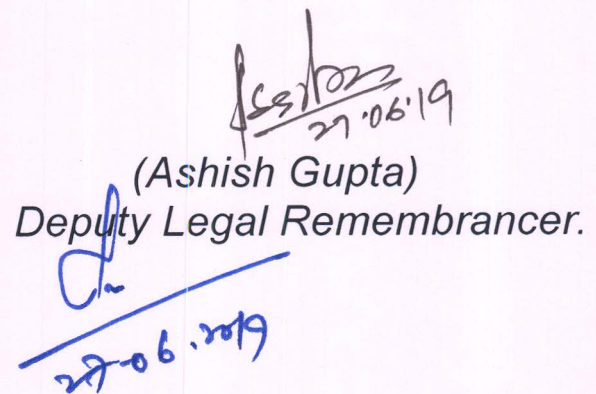 27.06.19
(Ashish Gupta)
Deputy Legal Remembrancer.
27-06.2019